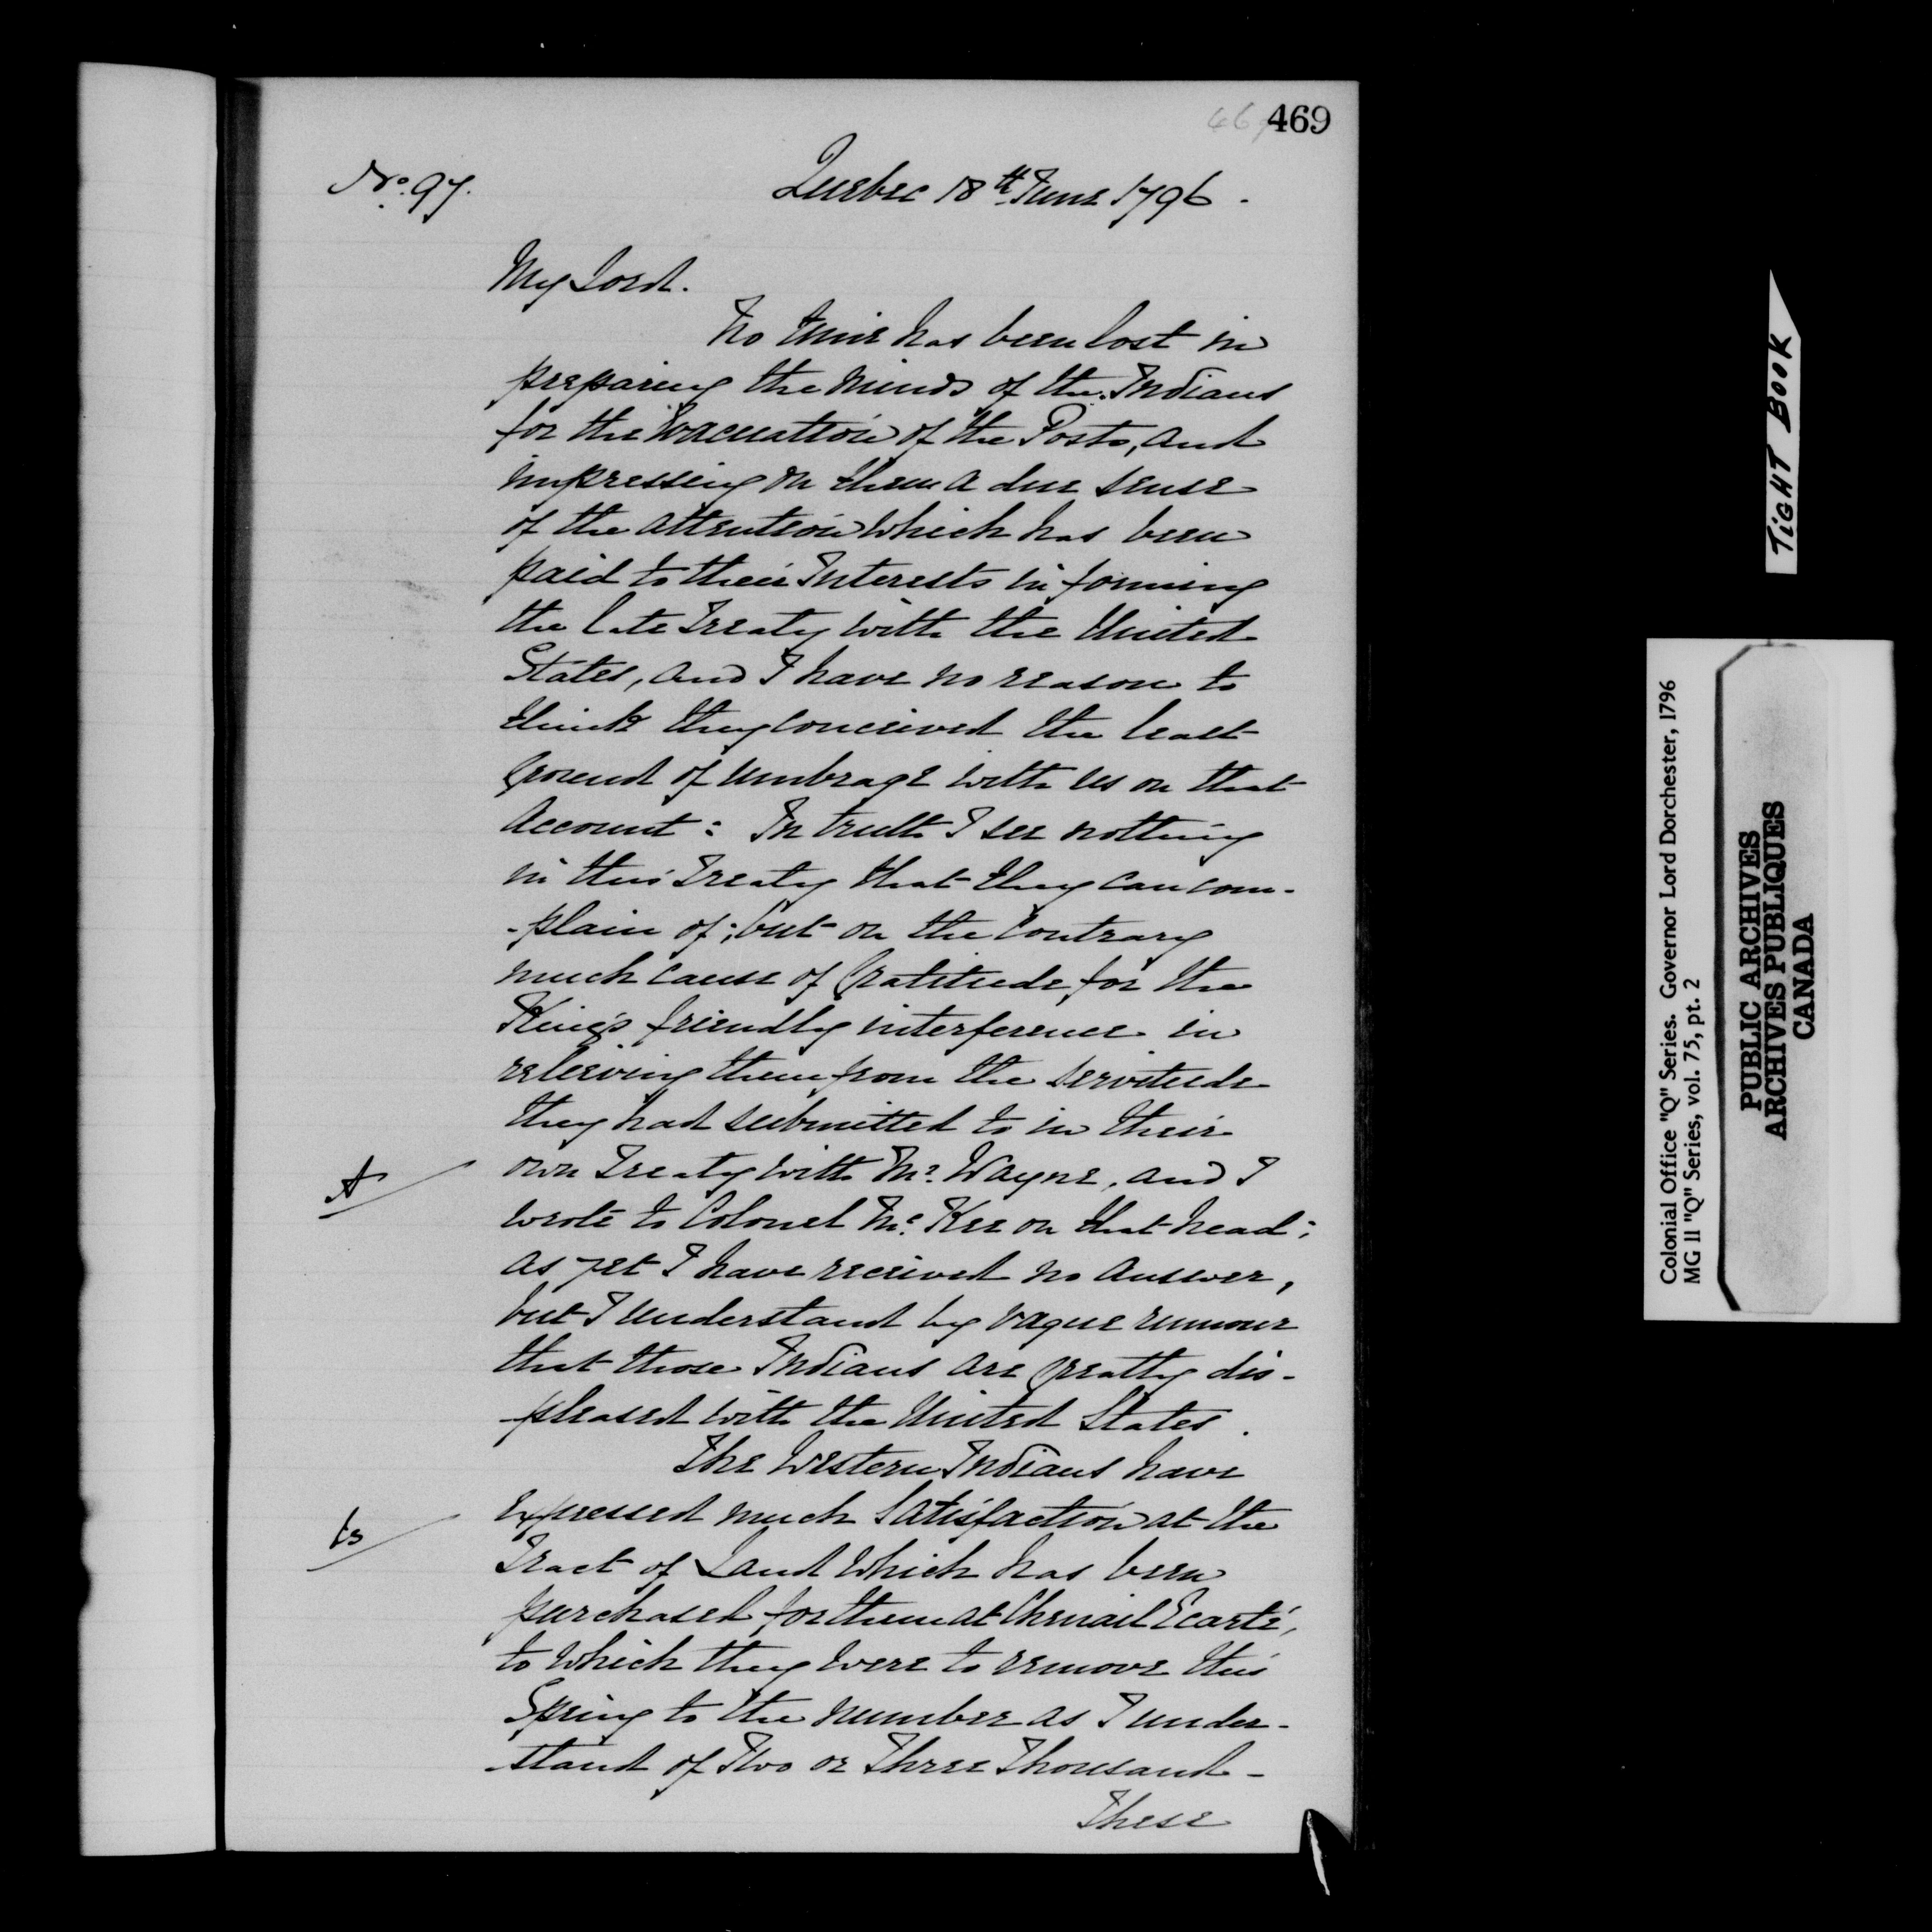 469
No. 97.
Quebec 18th June 1796.
My Lord.
No time has been lost in
preparing the minds of the Indians
for the Evacuation of the Posts, and
impressing on them a due sense
of the attention which has been
paid to their Interests in forming
the late Treaty with the United
States, and I have no reason to
think they conceived the least
Ground of umbrage with us on that
Account: In truth I see nothing
in this Treaty that they can com-
-plain of; but on the Contrary
much cause of Gratitude for the
King's friendly interference in
releiving them from the servitude
they had submitted to in their
A
own Treaty with Mr. Wayne, and I
wrote to Colonel Mc.Kee on that head;
as yet I have received no answer,
but I understand by vague rumour
that those Indians are Greatly dis-
-pleased with the United States.
The Western Indians have
B
Expressed much Satisfaction at the
Tract of Land which has been
purchased for them at Chenail Ecarté,
to which they were to remove this
Spring to the number as I under-
-stand of Two or Three Thousand -
These
TIGHT BOOK
Colonial Office "Q" Series. Governor Lord Dorchester, 1796
MG II "Q" Series, vol. 75, pt. 2
PUBLIC ARCHIVES
ARCHIVES PUBLIQUES
CANADA